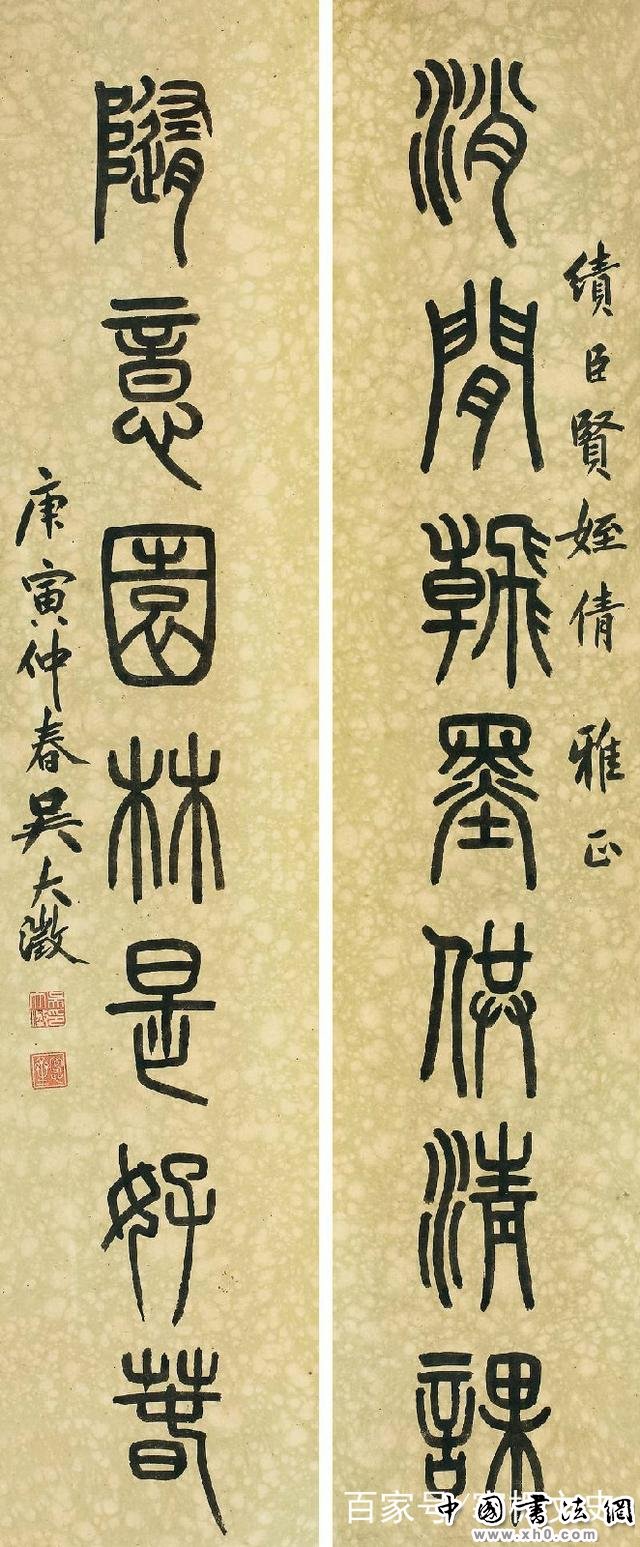 績臣賢姪倩 雅正
消閒翰墨供清課
隨意園林是好春
庚寅仲春吳大澂
百家号/
中國書法網
www.xh0.com